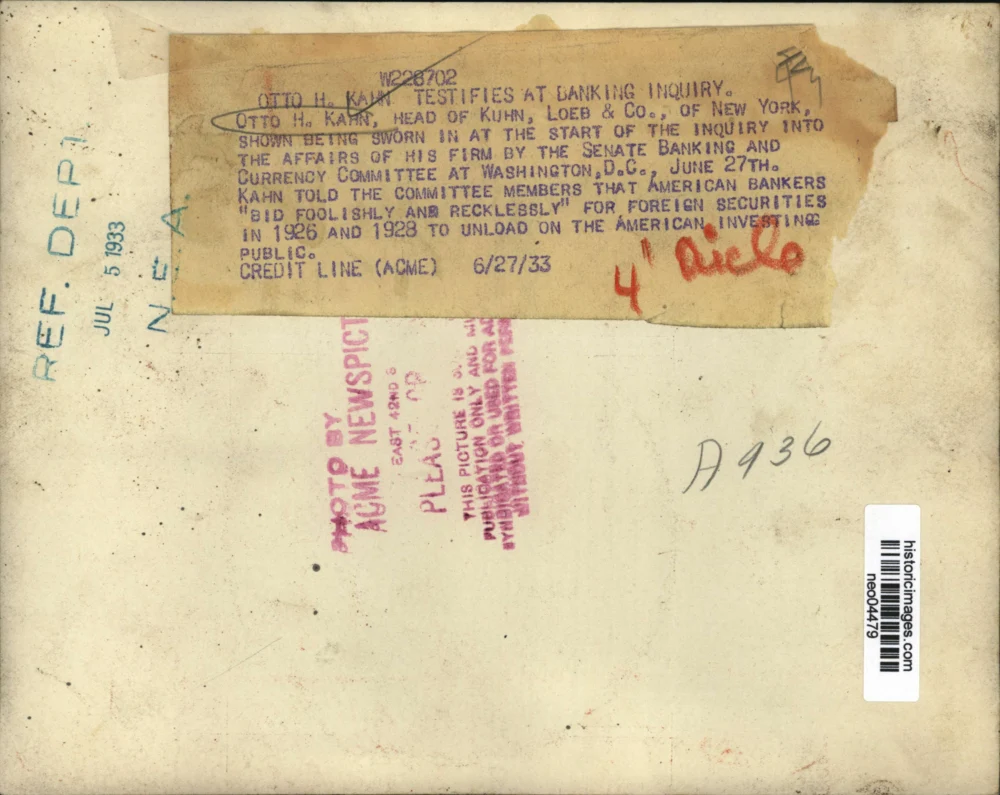 W226702
OTTO H. KAHN TESTIFIES AT BANKING INQUIRY.
OTTO H. KAHN, HEAD OF KUHN, LOEB & CO., OF NEW YORK,
SHOWN BEING SWORN IN AT THE START OF THE INQUIRY INTO
THE AFFAIRS OF HIS FIRM BY THE SENATE BANKING AND
CURRENCY COMMITTEE AT WASHINGTON, D.C., JUNE 27TH.
KAHN TOLD THE COMMITTEE MEMBERS THAT AMERICAN BANKERS
"BID FOOLISHLY AND RECKLESSLY" FOR FOREIGN SECURITIES
IN 1926 AND 1928 TO UNLOAD ON THE AMERICAN INVESTING
PUBLIC.
CREDIT LINE (ACME) 6/27/33
4"
REF. DEPT.
JUL 5 1933
N. E. A.
PHOTO BY
ACME NEWSPICT
EAST 42ND S
THIS PICTURE IS
PUBLICATION ONLY AND
SYNDICATED OR USED FOR AD
WITHOUT WRITTEN PER
A 936
historicimages.com
neo04479